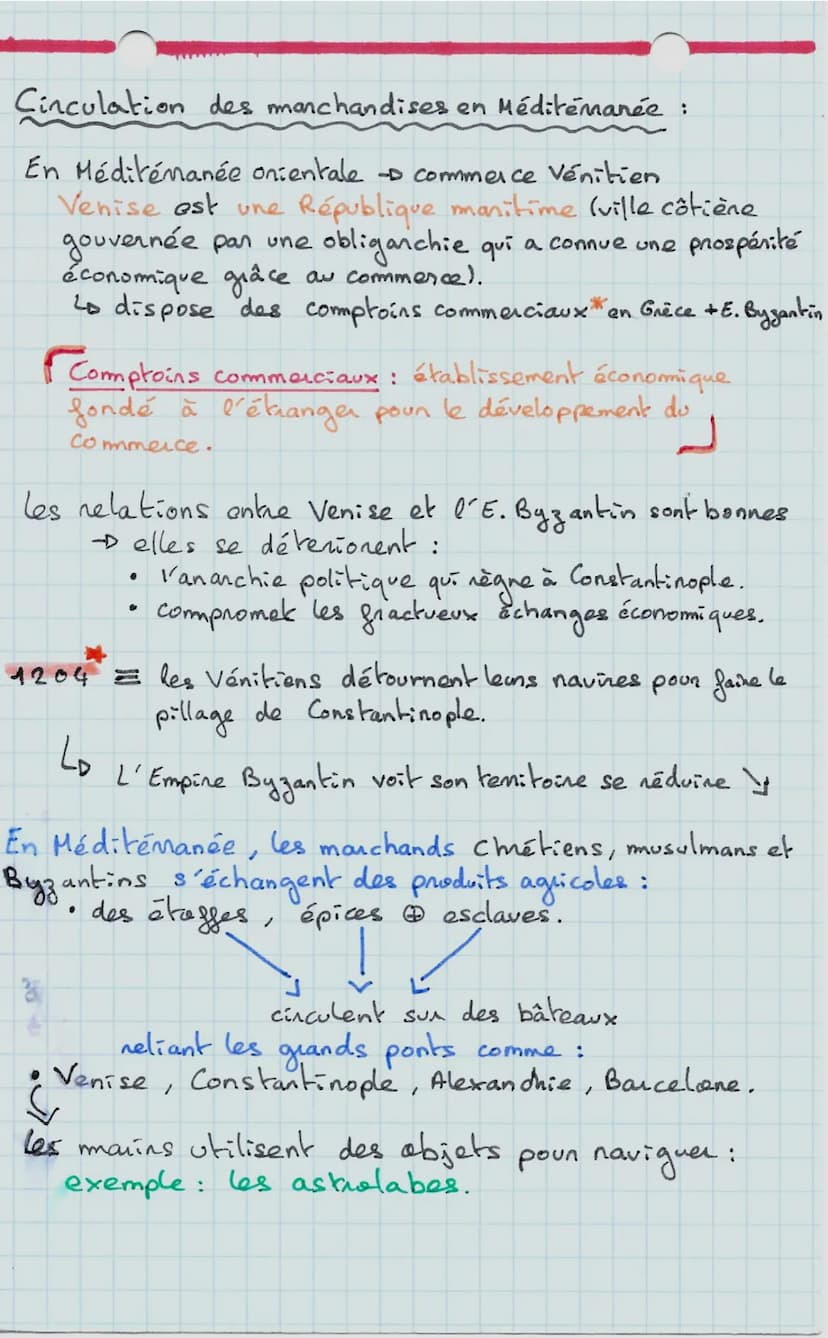 Circulation des marchandises en Méditérranée :
En Méditérranée orientale → commerce Vénitien
Venise est une République maritime (ville côtière
gouvernée par une obligarchie qui a connue une prospérité
économique grâce au commerce).
↳ dispose des comptoirs commerciaux* en Grèce + E. Byzantin
Comptoirs commerciaux : établissement économique
fondé à l'étranger pour le développement du
commerce.
Les relations entre Venise et l'E. Byzantin sont bonnes
→ elles se déteriorent :
• l'anarchie politique qui règne à Constantinople.
• compromet les fractueux échanges économiques.
1204* ≡ les Vénitiens détournent leurs navires pour faire le
pillage de Constantinople.
↳ L'Empire Byzantin voit son territoire se réduire ↘
En Méditérranée, les marchands chrétiens, musulmans et
Byzantins s'échangent des produits agricoles :
• des étoffes, épices ⊕ esclaves.
circulent sur des bâteaux
reliant les grands ports comme :
• Venise, Constantinople, Alexandrie, Barcelone.
Les marins utilisent des objets pour naviguer :
exemple : les astrolabes.